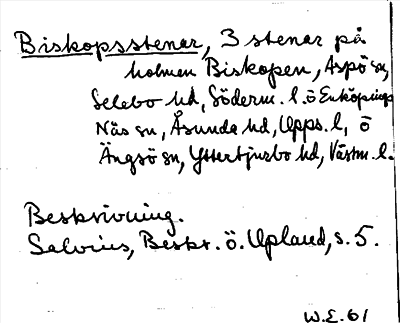 Biskopsstenar, 3 stenar på
holmen Biskopen, Aspö sn,
Selebo hd, Söderm. l. ö Enköpings
Näs sn, Åsunda hd, Upps. l, ö
Ängsö sn, Yttertjurbo hd, Västm. l.
Beskrivning.
Salvius, Beskr. ö. Upland, s. 5.
W.E. 61